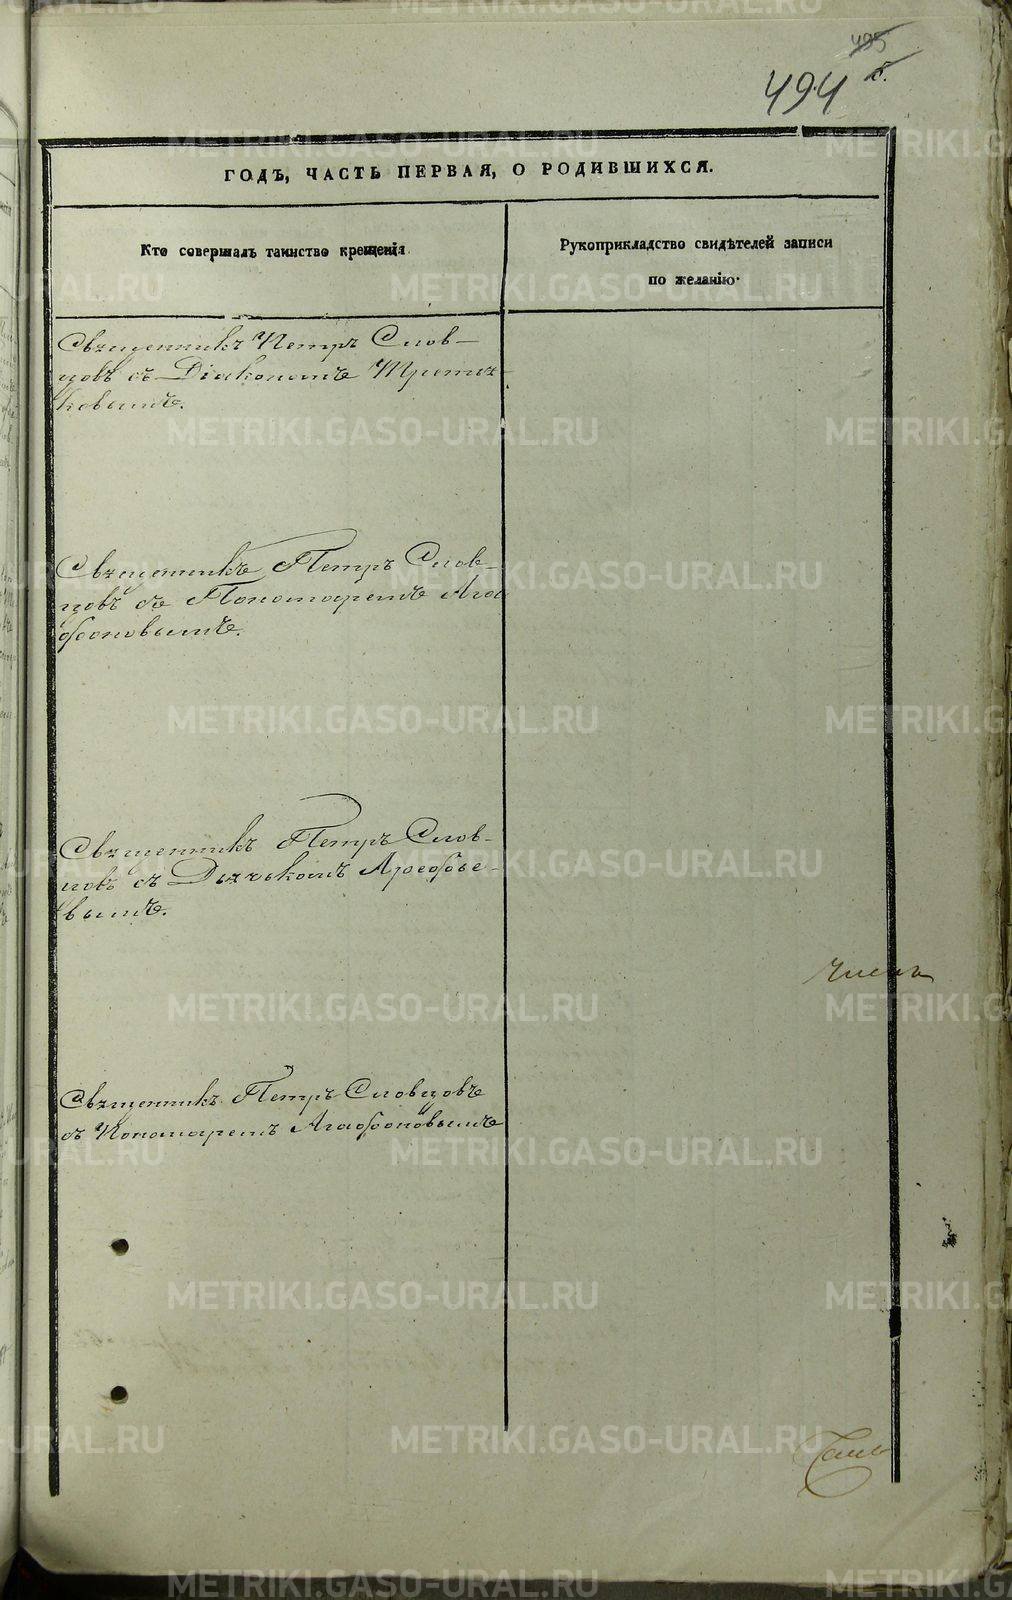 495
494
ГОДЪ, ЧАСТЬ ПЕРВАЯ, О РОДИВШИХСЯ.
Кто совершалъ таинство крещенія.
Рукоприкладство свидѣтелей записи
по желанію.
Священникъ Петръ Слов-
цовъ съ Діакономъ Третья-
ковымъ.
Священникъ Петръ Слов-
цовъ съ Пономаремъ Ага
фоновымъ.
Священникъ Петръ Слов-
цовъ съ Дьячькомъ Арефье-
вымъ.
Священникъ Петръ Словцовъ
съ Пономаремъ Агафоновымъ
METRIKI.GASO-URAL.RU